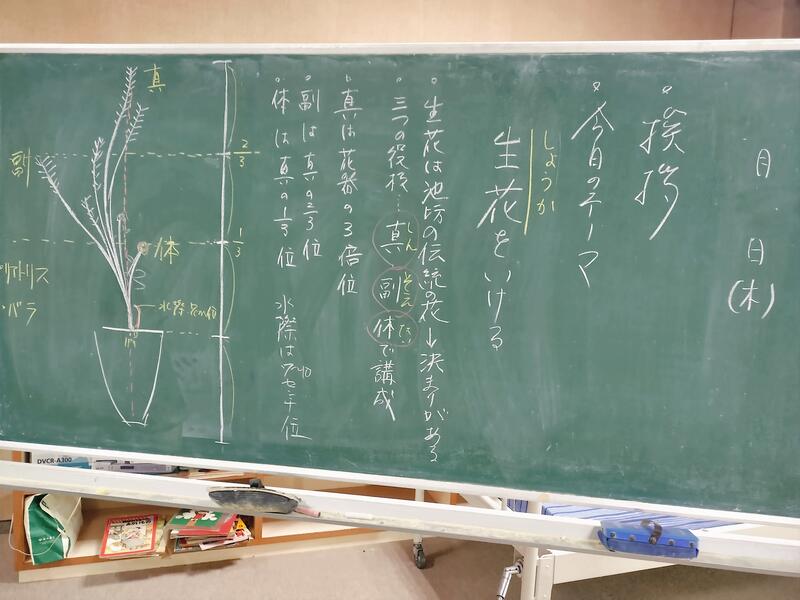 月 日(木)
。挨拶
。今日のテーマ
しょうか
生花をいける
。生花は池坊の伝統の花 → 決まりがある
。三つの役枝… 真 副 体 で講成
しん
そえ
たい
。真は花器の3倍位
。副は真の2/3位
。体は真の1/3位 水際は7センチ位
2/3
1/3
真
副
体
バラ
DVCR-A300